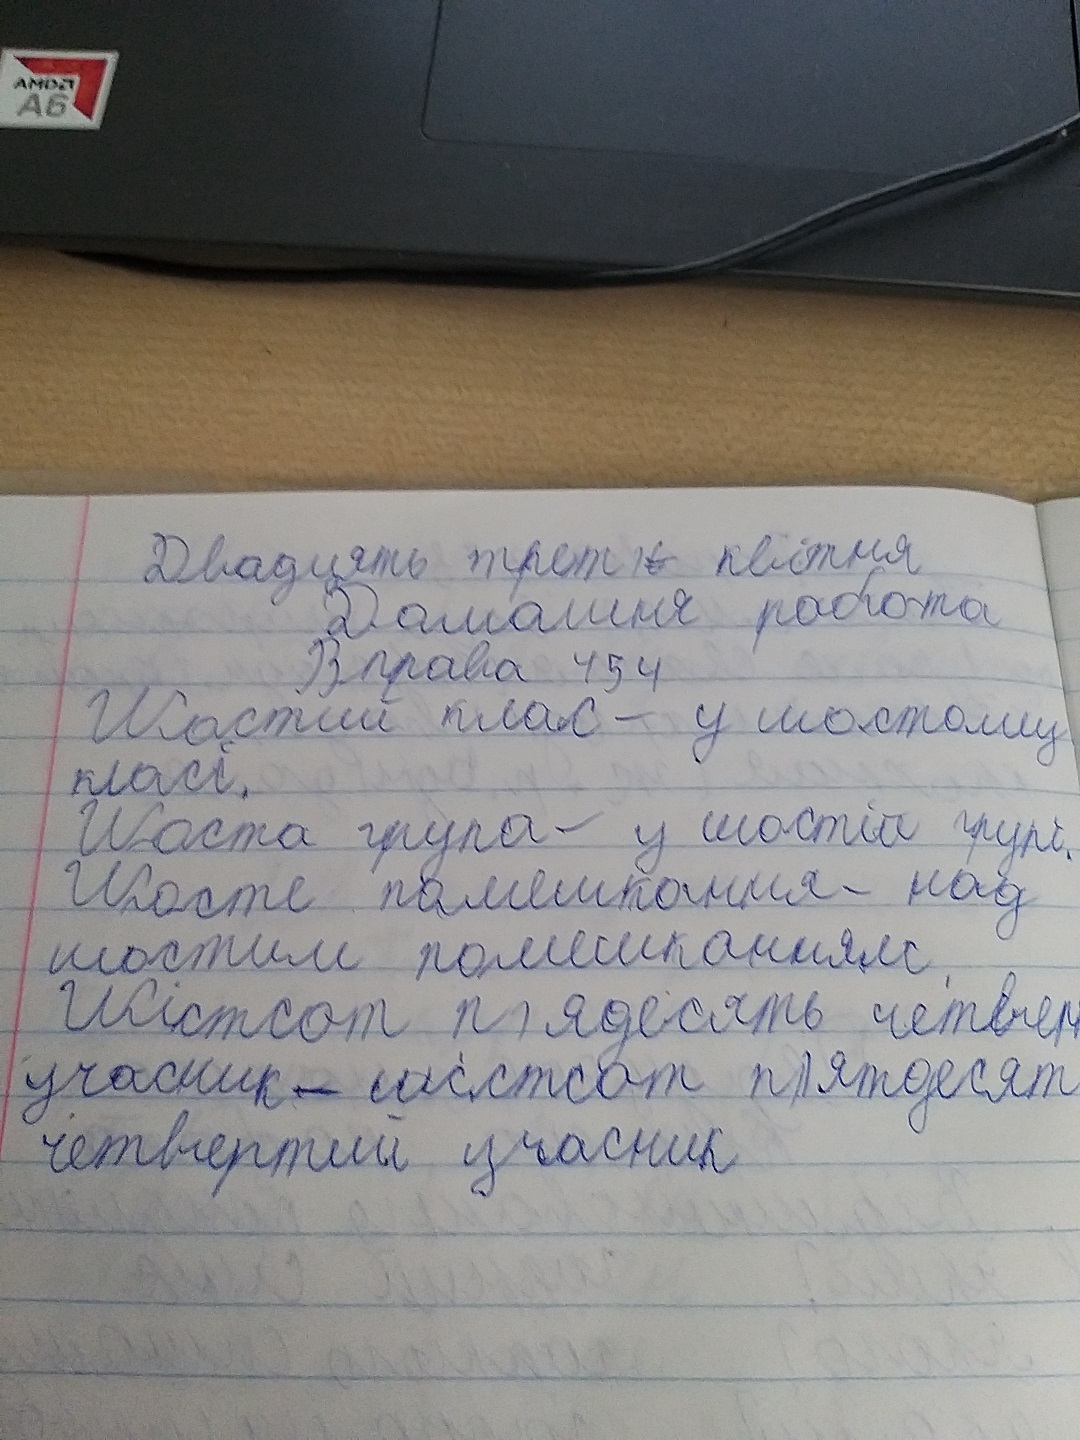 AMD
A6
Двадцять третє квітня
Домашня робота
Вправа 454
Шостий клас – у шостому
класі.
Шоста група – у шостій групі.
Шосте помешкання – над
шостим помешканням.
Шістсот п'ядесять четвер
учасник – шістсот п'ятдесят
четвертий учасник